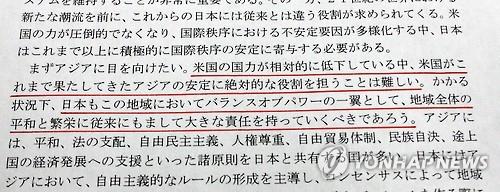 ステムを維持することが非常に重要である。
新たな潮流を前に、これからの日本には従来とは違う役割が求められてくる。米
国の力が圧倒的でなくなり、国際秩序における不安定要因が多様化する中、日本
はこれまで以上に積極的に国際秩序の安定に寄与する必要がある。
まずアジアに目を向けたい。米国の国力が相対的に低下している中、米国がこ
れまで果たしてきたアジアの安定に絶対的な役割を担うことは難しい。かかる
状況下、日本もこの地域においてバランスオブパワーの一翼として、地域全体の
平和と繁栄に従来にもまして大きな責任を持っていくべきであろう。アジアに
は、平和、法の支配、自由民主主義、人権尊重、自由貿易体制、民族自決、途上
国の経済発展への支援といった諸原則を日本と共有する国
アにおいて、自由主義的なルールの形成を主導し、コンセンサスによって地域
YONHAP NEWS